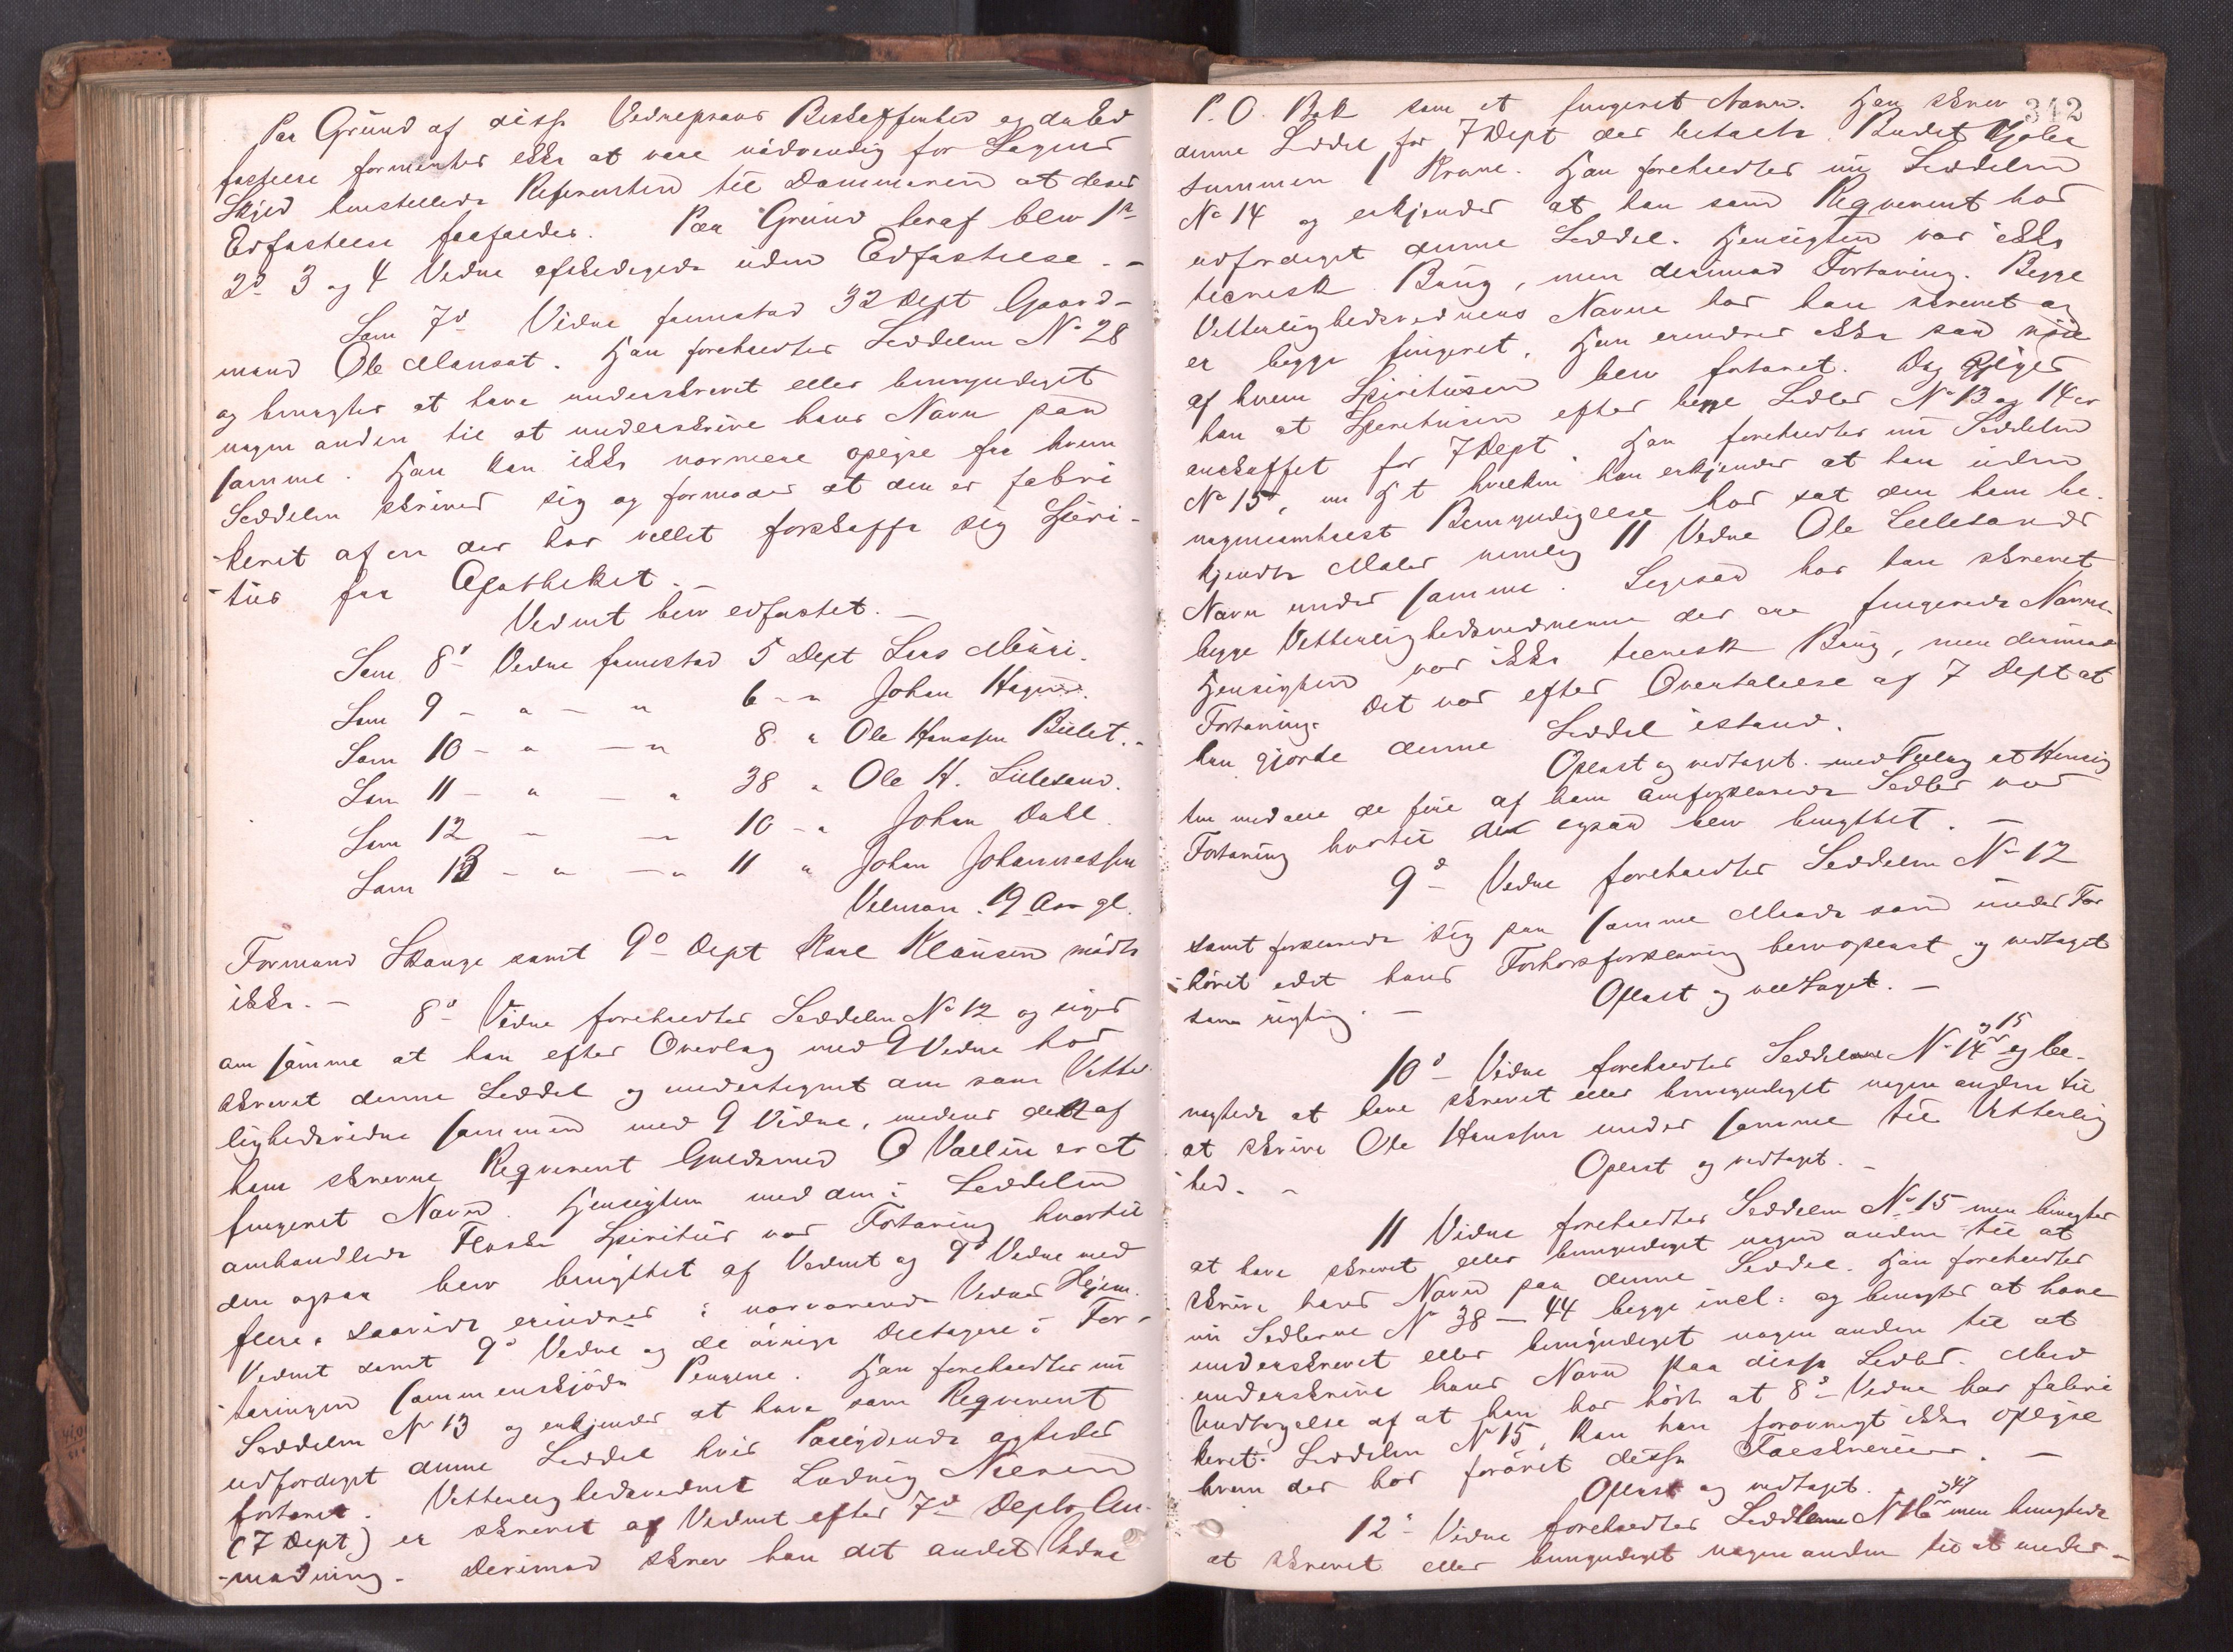 Paa Grund af disse Vidneprovs Beskaffenhed og da Ed
fæstelse formentes ikke at være nødvendig for Sagens
Skyld henstillede Referenten til Dommeren at deres
Edfæstelse frafaldes. Paa Grund heraf blev 1ste
2d 3 og 4 Vidne afskedigede uden Edfæstelse. -
Som 7d Vidne fremstod 32 Dept Gaard-
mand Ole Mansat. Han foreholdtes Seddelen No 28
og benægter at have underskrevet eller bemyndiget
nogen anden til at underskrive hans Navn paa
samme. Han kan ikke nærmere oplyse fra hvem
Seddelen skriver sig og formoder at den er fabri
-keret af en der har villet forskaffe sig Spiri-
-tus fra Apotheket. -
Vidnet blev edfæstet. -
Som 8d Vidne fremstod 5 Dept Lars Mauri.
Som 9 - " - " 6 - " Johan Hagen.
Som 10 - " - " 8 " Ole Hanssen Bület. -
Som 11 - " - " 38 " Ole H. Lillesand.
Som 12 - - " 10 - " Johan Dahl.
Som 13 - " - " 11 " Johan Johannessen
Velman. 19 Aar gl.
Formand Skauge samt 9d Dept Karl Klausen mødte
ikke. -
8d Vidne foreholdtes Seddelen No 12 og siger
om samme at han efter Overlæg med 9 Vidne har
skrevet denne Seddel og undertegnet den som Vitter
lighedsvidne sammen med 9 Vidne, medens det af
ham skrevne Reqvirent Guldsmed O Vallin er et
fingeret Navn. Hensigten med den i Seddelen
omhandlede Flaske Spiritus var Fortæring hvortil
den ogsaa blev benyttet af Vidnet og 9d Vidne med
flere. Saavidt erindres i nærværende Vidnes Hjem.
Vidnet samt 9d Vidne og de øvrige Deltagere i For-
tæringen sammenskjøde Pengene. Han foreholdtes nu
Seddelen No 13 og erkjender at have som Reqvirent
udfærdiget denne Seddel hvis Paalydende ogledes
fortæret. Vitterlighedsvidnet Ludvig Nilsen
(7 Dept) er skrevet af Vidnet efter 7d Depts An-
-modning. Derimod skrev han det andet Vidne
342
P. O. Bak som et fingeret Navn. Han skrev
denne Seddel for 7 Dept der betalte Budet Kjøbe
summen 1 Krone. Han foreholdtes nu Seddelen
No 14 og erkjender at han som Reqvirent har
udfærdiget denne Seddel. Hensigten var ikke
teknisk Brug, men derimod Fortæring. Begge
Vitterlighedsvidners Navne har han skrevet og
er begge fingeret. Han erindrer ikke saa nøie
af hvem Spiritusen blev fortæret. Dog tilføier
han at Spiritusen efter begge Sedler No 13 og 14 er
anskaffet for 7 Dept. Han foreholdtes nu Seddelen
No 15, m H t hvilken han erkjender at han uden
nogensomhelst Bemyndigelse har sat den ham be-
kjendte Maler nemlig 11 Vidne Ole Lillesands
Navn under samme. Ligesaa har han skrevet
begge Vitterlighedsvidnerne der er fingerede Navne.
Hensigten var ikke teknisk Brug, men derimod
Fortæring. Det var efter Overtalelse af 7 Dept at
han gjorde denne Seddel istand.
Oplæst og vedtaget. med Tillæg at Hensig
ten med alle de fire af ham omforklarede Sedler var
Fortæring hvortil det ogsaa blev benyttet. -
9d Vidne foreholdtes Seddelen No 12
samt forklarede sig paa samme Maade som under For
høret idet hans Forhørsforklaring blev oplæst og vedtaget
som rigtig. -
Oplæst og vedtaget. -
10d Vidne foreholdtes Seddelen No 14 og 15 og be-
nægtede at have skrevet eller bemyndiget nogen anden til
at skrive Ole Hanssen under samme til Vitterlig
hed. -
Oplæst og vedtaget. -
11 Vidne foreholdtes Seddelen No 15 men benægter
at have skrevet eller bemyndiget nogen anden til at
skrive hans Navn paa denne Seddel. Han foreholdtes
nu Sedlerne No 38 - 44 begge incl: og benægter at have
underskrevet eller bemyndiget nogen anden til at
underskrive hans Navn paa disse Sedler. Med
Undtagelse af at han har hørt at 8d Vidne har fabri
keret Seddelen No 15, kan han forøvrigt ikke oplyse
hvem der har forøvet disse Falsknerier. -
Oplæst og vedtaget.
12d Vidne foreholdtes Seddlerne No 16 og 47 men benægtede
at skrevet eller bemyndiget nogen anden til at under-